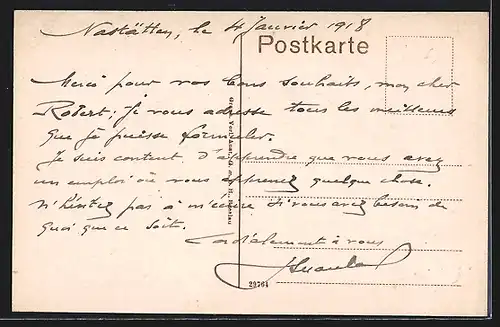 Nastätten, le 4 Janvier 1918
Postkarte
Merci pour vos bons souhaits, mon cher
Robert; je vous adresse tous les meilleurs
que je puisse formuler.
Je suis content d'apprendre que vous avez
un emploi où vous apprenez quelque chose.
N'hésitez pas à m'écrire si vous avez besoin de
quoi que ce soit.
Cordialement à vous
29764